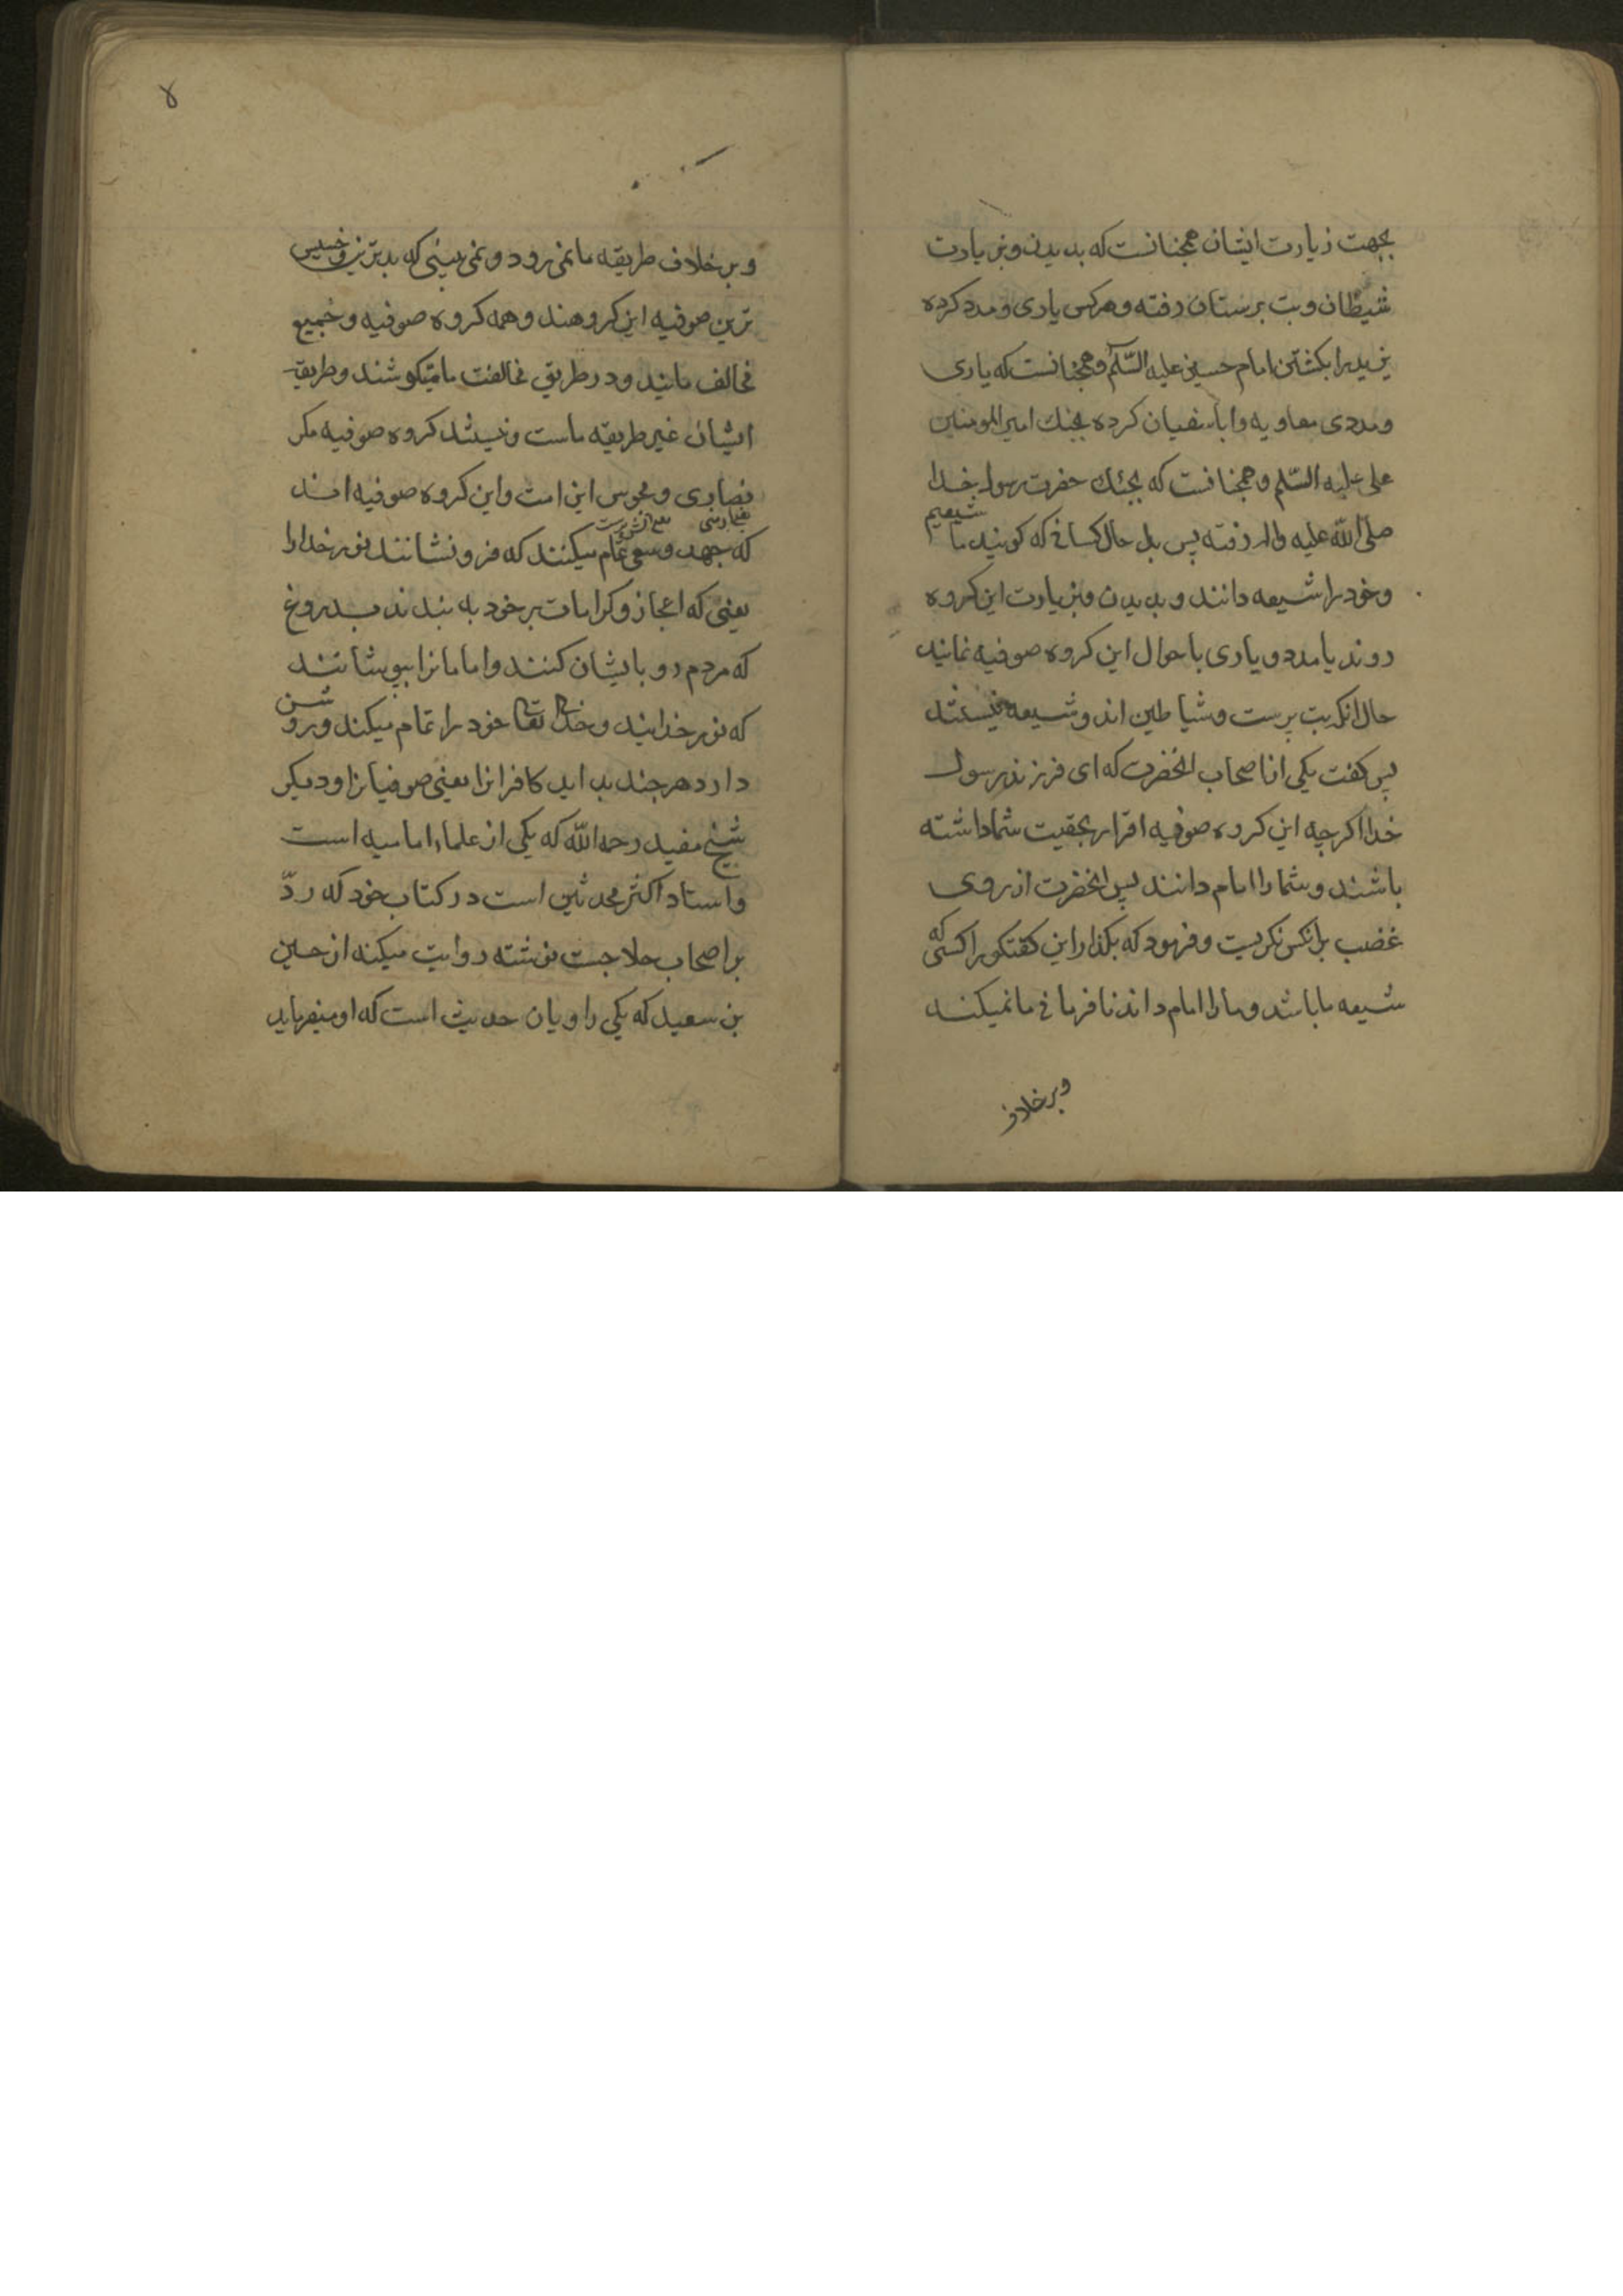 بجهت زیارت ایشان همجنانست که بدیدن و بزیارت
شیطان و بت برستان رفته و هرکس یاری و مدد کرده
یزید را بکشتن امام حسین علیه السّلام و همجنانست که یاری
و مددی معاویه و اباسفیان کرده بجنك امیر المومنین
علی علیه السّلم و همجنانست که بجنك حضرت رسول خدا
صلی اللّه علیه واله رفته پس بدا حال کسانی که کویند ما شیعیم
و خود را شیعه دانند و بدیدن و بزیارت این کروه
روند یا مدد و یاری باحوال این کروه صوفیه نمایند
حال انکه بت پرست و شیاطین اند و شیعه نیستند
پس کفت یکی از اصحاب انحضرت که ای فرزند رسول
خدا اکرچه این کروه صوفیه اقرار بحقیت شما داشته
باشند و شما را امام دانند پس انحضرت از روی
غضب بر انکس نکریست و فرمود که بکذار این کفتکو را کسی که
شیعه ما باشد و ما را امام داند نافرمانی ما نمیکند
وبرخلاف
۸
و بر خلاف طریقه ما نمی رود و نمی بینی که بدترین و خسیس
ترین صوفیه این کروهند و همه کروه صوفیه و جمیع
مخالف مایند و در طریق مخالفت ما میکوشند و طریقه
ایشان غیر طریقه ماست و نیستند کروه صوفیه مکر
نصاری و مجوس این امت و این کروه صوفیه اند
یعنی ارمنی یعنی اتش پرست
که جهد و سعی تمام میکنند که فرو نشانند نور خدا را
یعنی که اعجاز و کرامات بر خود به بندند بدروغ
که مردم رو بایشان کنند و امامانرا بپوشانند
که نور خدایند و خدای تعالی خود را تمام میکند و روشن
دارد هرجند بد اید کافرانرا یعنی صوفیانرا و دیکر
شیخ مفید رحمه اللّه که یکی از علماء امامیه است
و استاد اکثر محدثین است در کتاب خود که ردّ
بر اصحاب حلاجست نوشته روایت میکند از حسین
بن سعید که یکی راویان حدیث است که او میفرماید